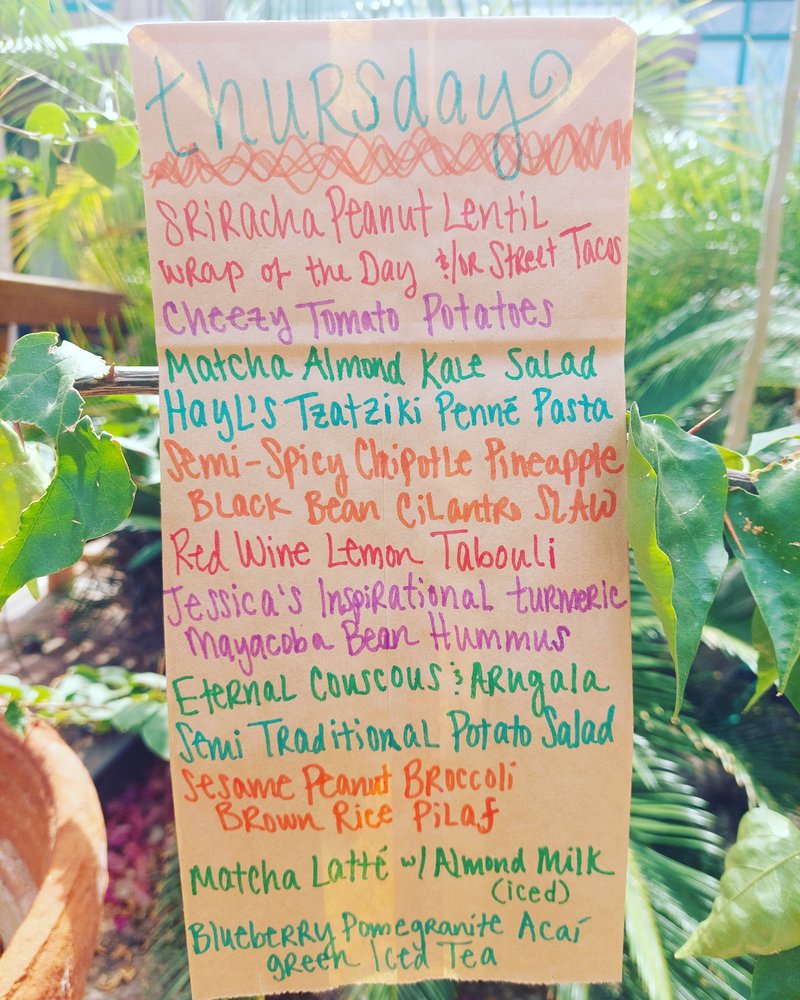 thursday
Sriracha Peanut Lentil
Wrap of the Day &/or Street Tacos
Cheezy Tomato Potatoes
Matcha Almond Kale Salad
Hayl's Tzatziki Penné Pasta
Semi-Spicy Chipotle Pineapple
Black Bean Cilantro Slaw
Red Wine Lemon Tabouli
Jessica's Inspirational turmeric
Mayacoba Bean Hummus
Eternal Couscous & Arugala
Semi Traditional Potato Salad
Sesame Peanut Broccoli
Brown Rice Pilaf
Matcha Latté w/ Almond Milk
(iced)
Blueberry Pomegranite Acaí
green Iced Tea